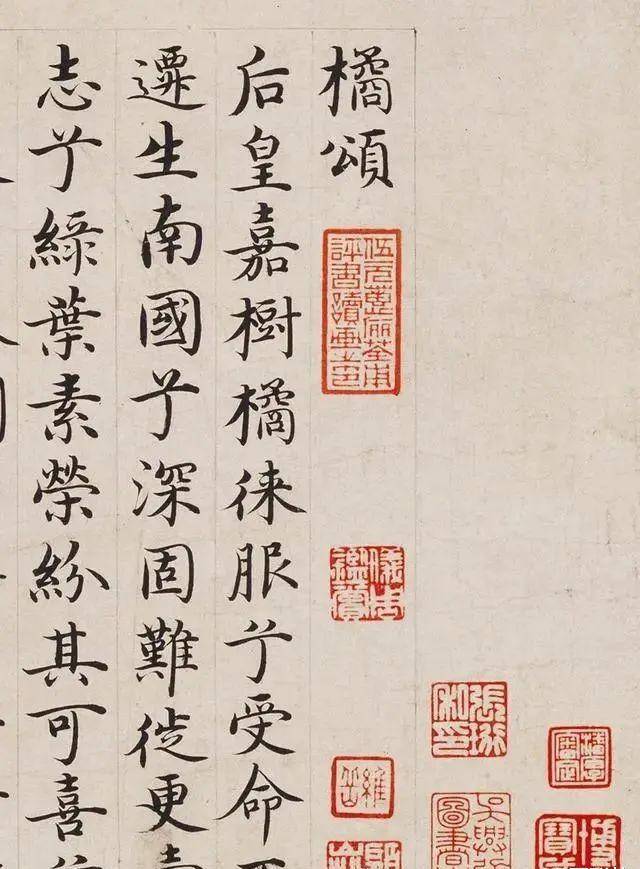 橘頌
后皇嘉樹橘徠服兮受命
遷生南國兮深固難徙更
志兮綠葉素榮紛其可喜
儀周鑑賞
張珩私印